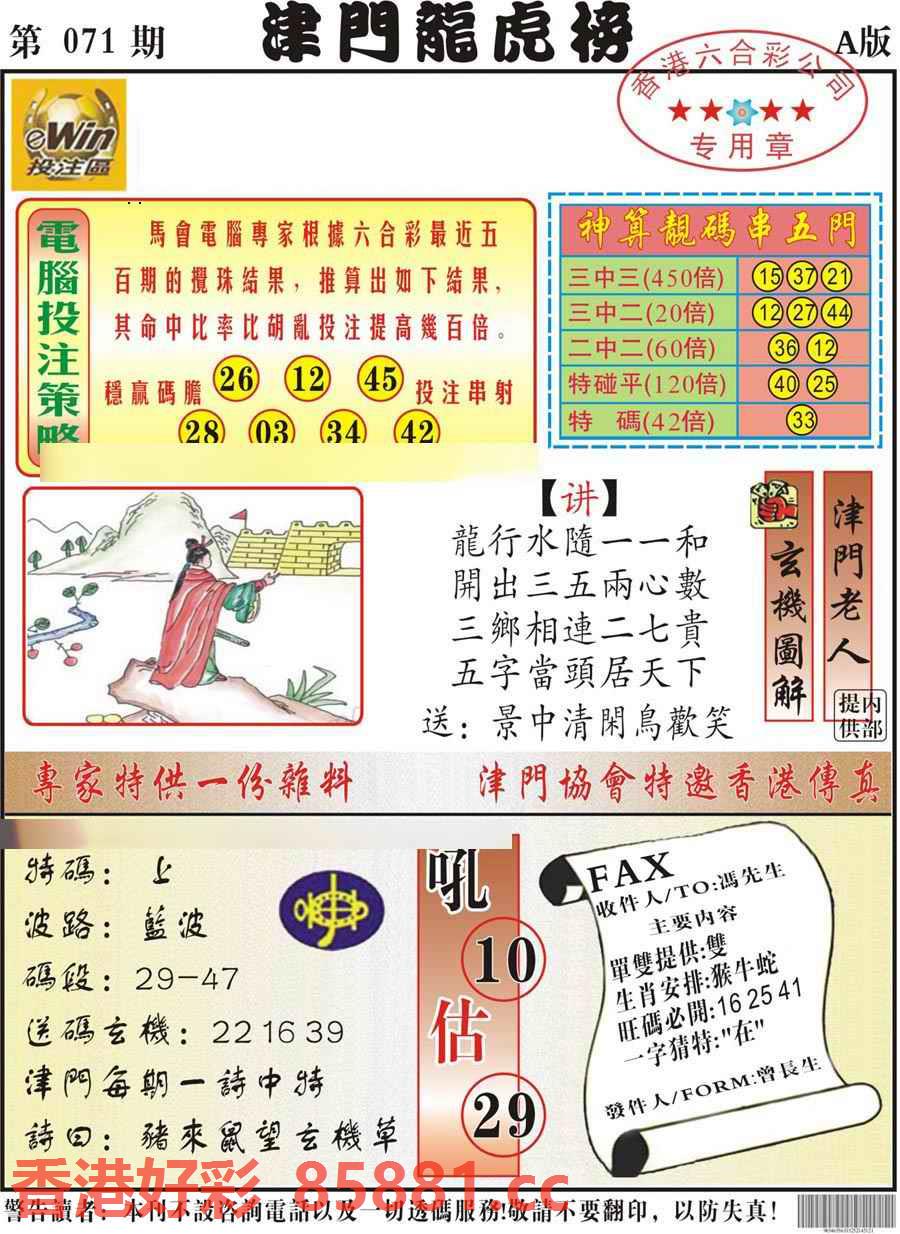 第 071 期
津門龍虎榜
A版
香港六合彩公司
专用章
eWin
投注區
電腦投注策略
馬會電腦專家根據六合彩最近五
百期的攪珠結果，推算出如下結果，
其命中比率比胡亂投注提高幾百倍。
穩贏碼膽 26 12 45 投注串射
28 03 34 42
神算靚碼串五門
三中三(450倍) 15 37 21
三中二(20倍) 12 27 44
二中二(60倍) 36 12
特碰平(120倍) 40 25
特 碼(42倍) 33
【讲】
龍行水隨一一和
開出三五兩心數
三鄉相連二七貴
五字當頭居天下
送：景中清閑鳥歡笑
玄機圖解
津門老人
内部提供
專家特供一份雜料
津門協會特邀香港傳真
特碼：上
波路：藍波
碼段：29-47
送碼玄機：22 16 39
津門每期一詩中特
詩曰：豬來鼠望玄機草
吼
10
估
29
FAX
收件人/TO:馮先生
主要内容
單雙提供:雙
生肖安排:猴牛蛇
旺碼必開:16 25 41
一字猜特:"在"
發件人/FORM:曾長生
香港好彩 85881.cc
警告讀者：本刊不設咨詢電話以及一切透碼服務!敬請不要翻印，以防失真!